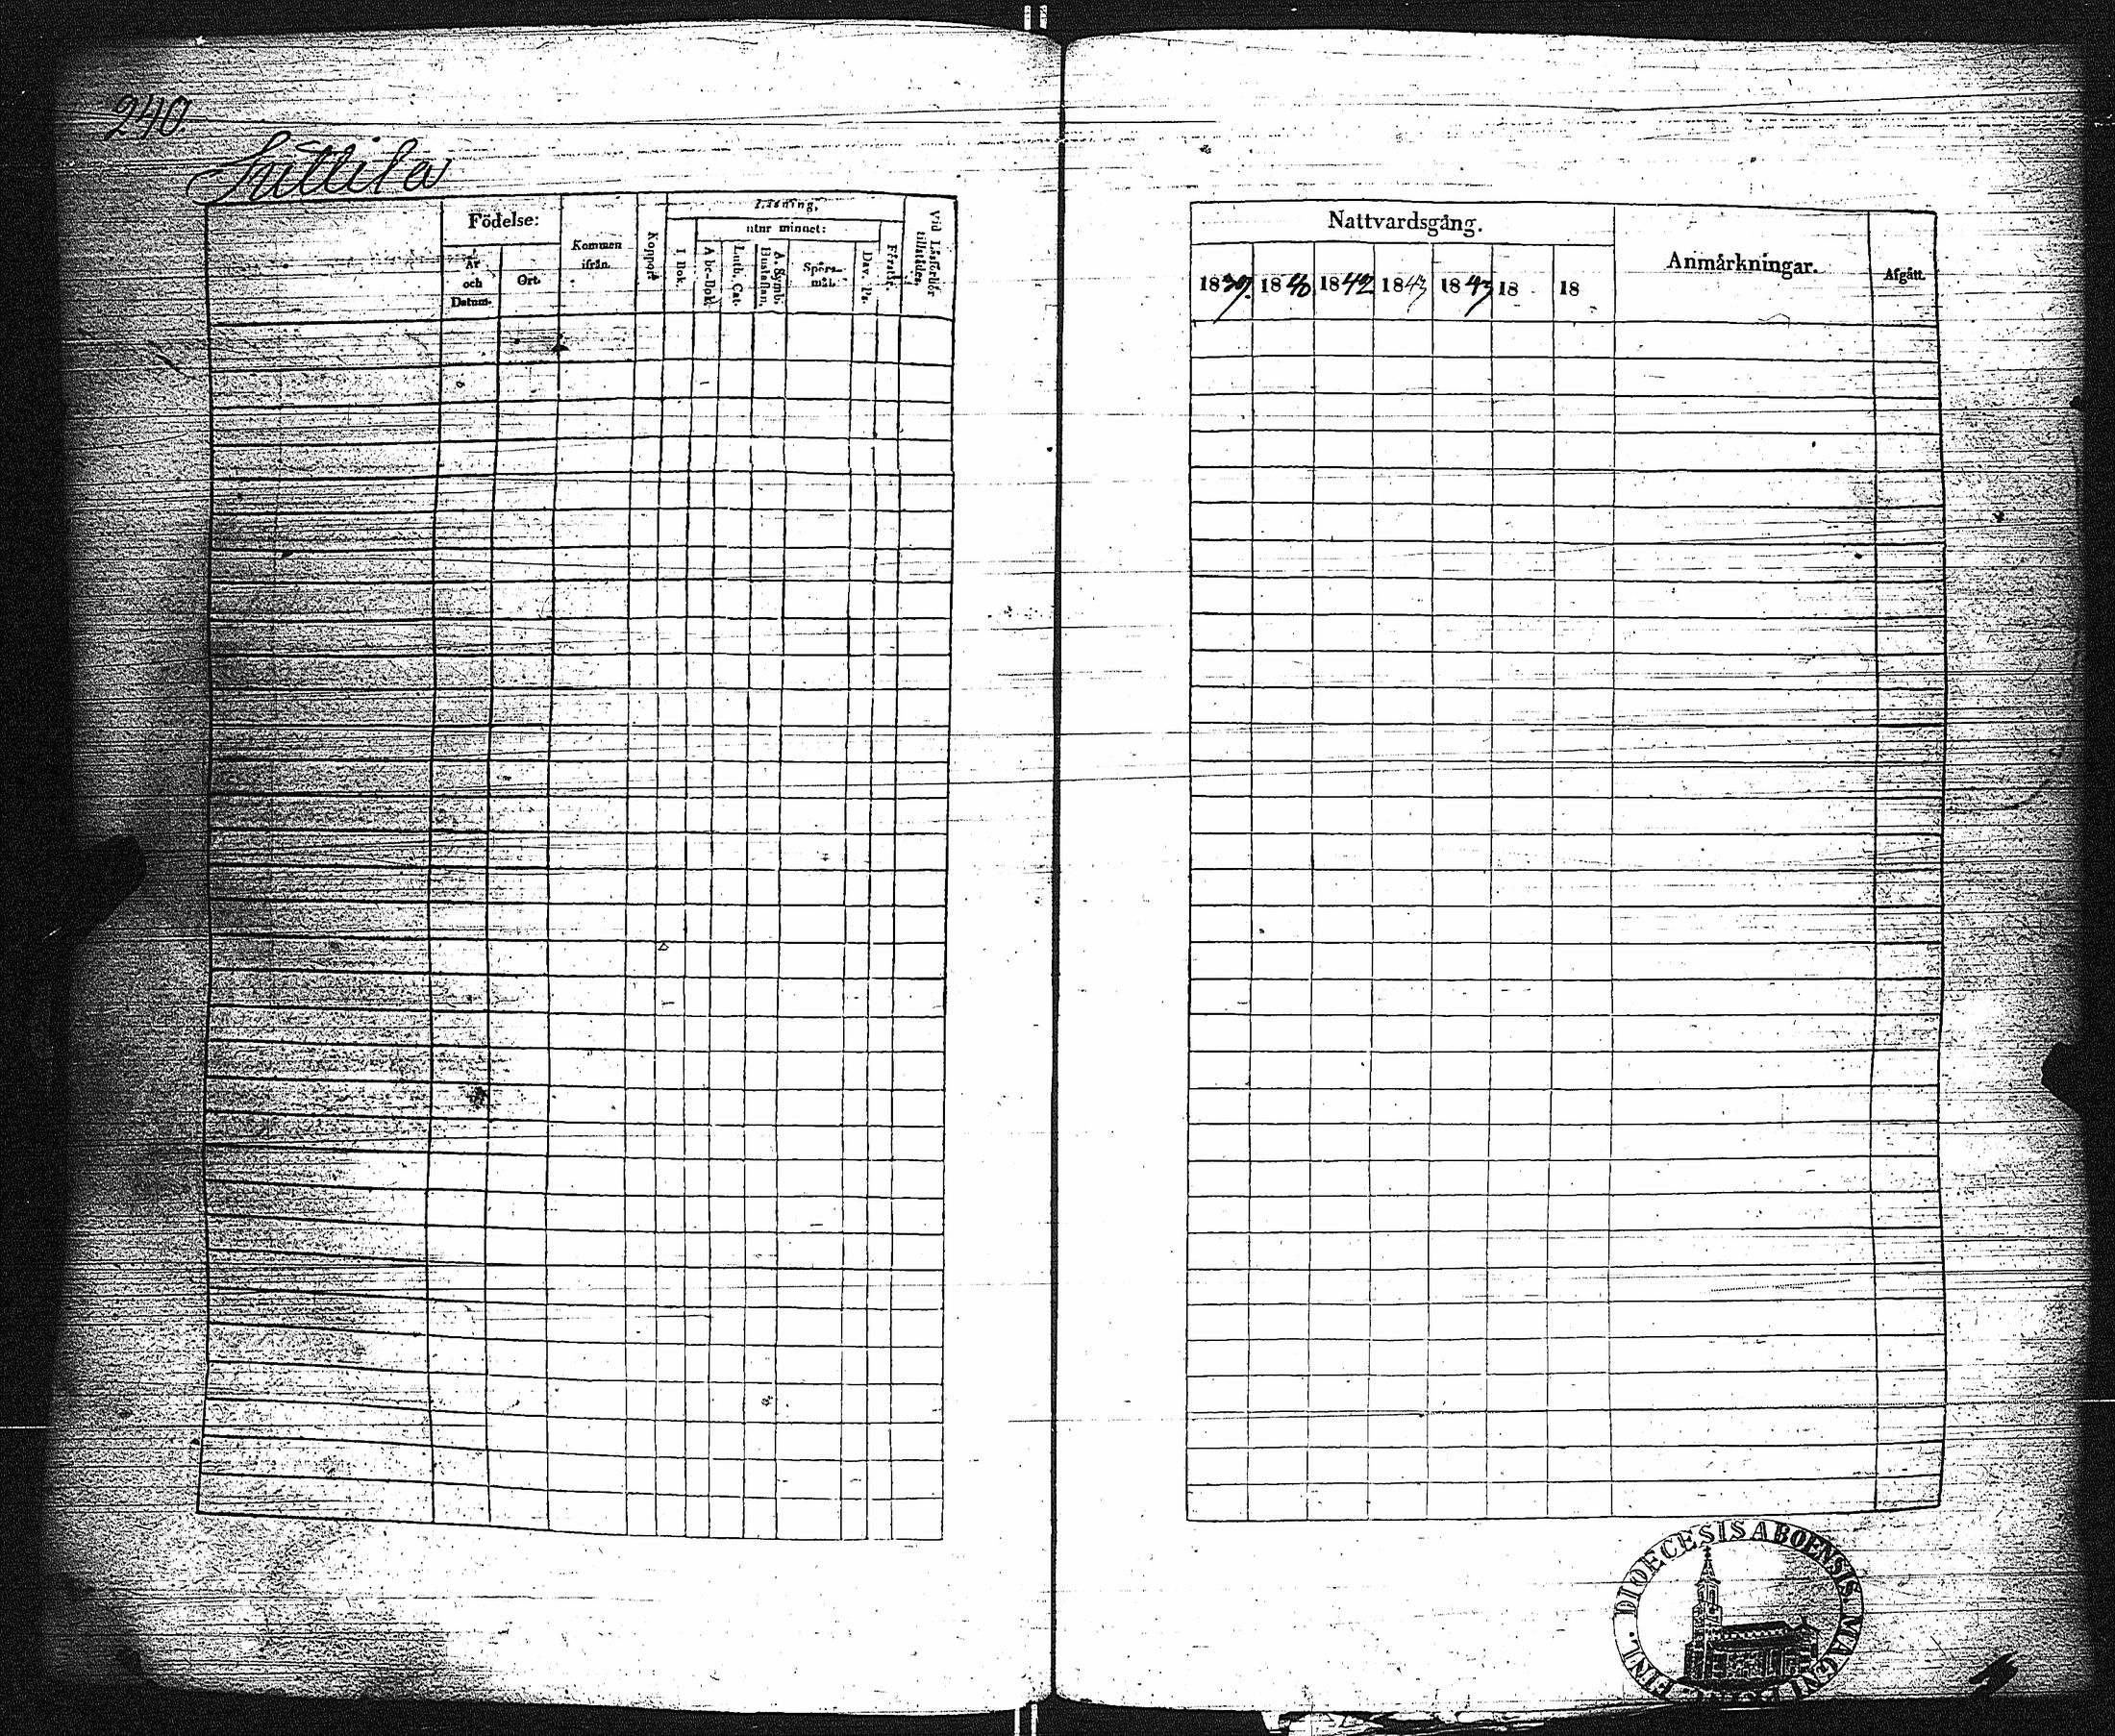 240.
Suttila
Födelse:
År och Datum.
Ort.
Kommen ifrån.
Koppor.
Läsning,
I Bok.
utur minnet:
Abc-Bok.
Luth. Cat.
A. Symb. Hustaflan.
Spörsmål.
Dav. Ps.
Förstår.
Vid Läsförhör tillstädes.
Nattvardsgång.
1839. 1840 1842 1843 1843 18 18
Anmärkningar.
Afgått.
FINL. DIOECESIS ABOENSIS. MAGNI